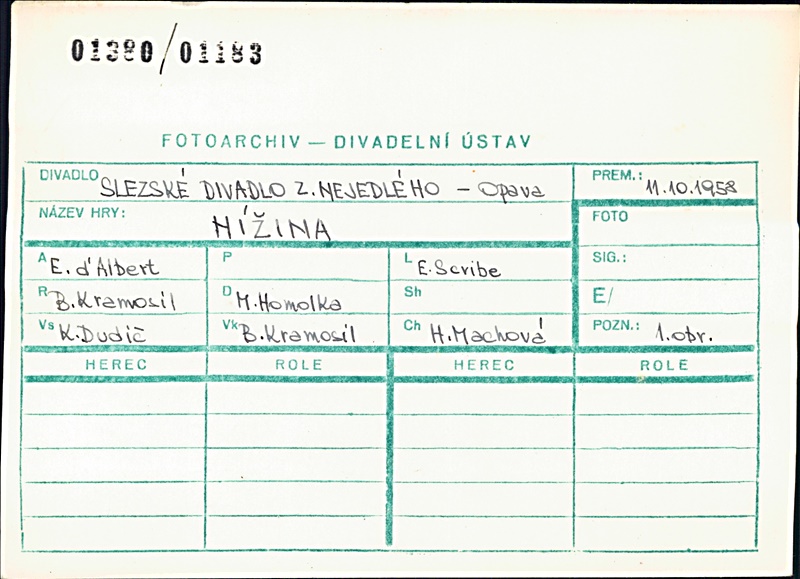 01380/01183
FOTOARCHIV — DIVADELNÍ ÚSTAV
DIVADLO SLEZSKÉ DIVADLO Z. NEJEDLÉHO - Opava PREM.: 11.10.1958
NÁZEV HRY: NÍŽINA FOTO
A E. d'Albert P L E. Scribe SIG.:
R B. Kramosil D M. Homolka Sh E/
Vs K. Dudič Vk B. Kramosil Ch H. Machová POZN.: 1.obr.
HEREC ROLE HEREC ROLE